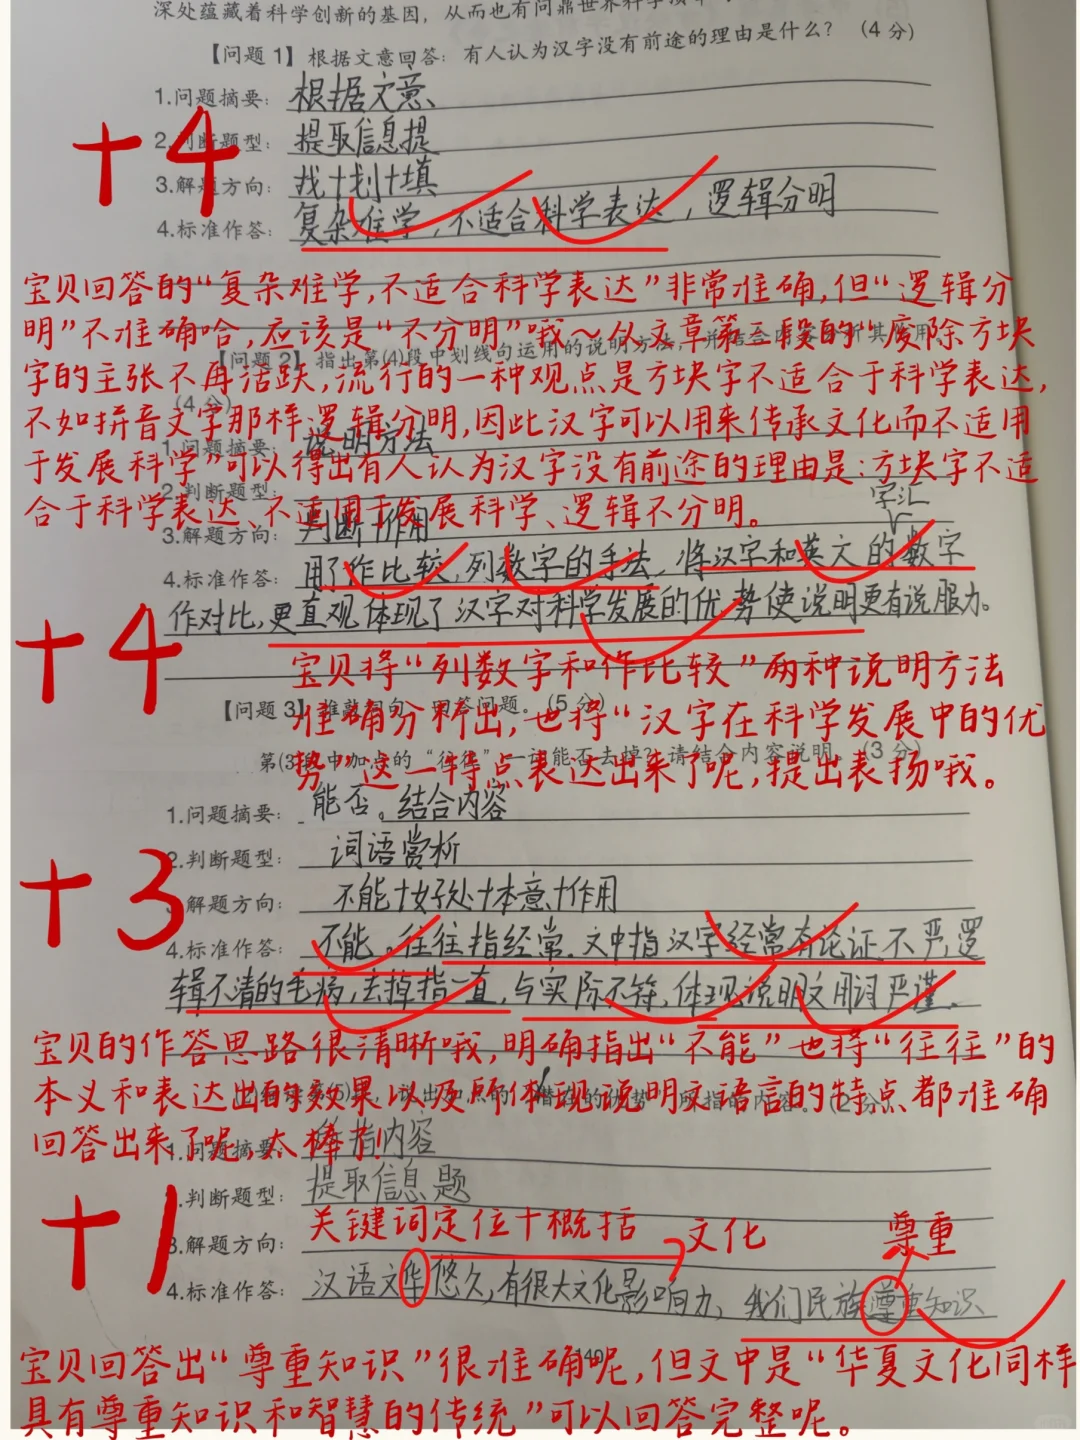 深处蕴藏着科学创新的基因，从而也有问鼎世界科学顶
【问题1】根据文意回答：有人认为汉字没有前途的理由是什么？（4分）
1.问题摘要：根据文意、
+4
2.判断题型：提取信息提
3.解题方向：找+划+填
4.标准作答：复杂难学，不适合科学表达，逻辑分明
宝贝回答的“复杂难学,不适合科学表达”非常准确,但“逻辑分
明”不准确哈,应该是“不分明”哦~从文章第三段的“废除方块
【问题2】指出第(4)段中划线句运用的说明方法，并结合内容分析其作用。
字的主张不再活跃,流行的一种观点是方块字不适合于科学表达,
（4分）
不如拼音文字那样逻辑分明,因此汉字可以用来传承文化而不适用
1.问题摘要：说明方法
于发展科学”可以得出有人认为汉字没有前途的理由是:方块字不适
2.判断题型：
合于科学表达、不适用于发展科学、逻辑不分明。
字汇
3.解题方向：判断+作用
4.标准作答：用了作比较,列数字的手法，将汉字和英文的数字
作对比,更直观体现了汉字对科学发展的优势使说明更有说服力。
+4
宝贝将“列数字和作比较”两种说明方法
【问题3】推敲词句，回答问题。（5分）
准确分析出,也将“汉字在科学发展中的优
第(3)段中加点的“往往”一词能否去掉？请结合内容说明。（3分）
势”这一特点表达出来了呢,提出表扬哦。
1.问题摘要：能否。结合内容
2.判断题型：词语赏析
+3
3.解题方向：不能+好处+本意+作用
4.标准作答：不能。往往指经常。文中指汉字经常有论证不严,逻
辑不清的毛病,去掉指一直,与实际不符,体现说明文用词严谨.
宝贝的作答思路很清晰哦,明确指出“不能”也将“往往”的
本义和表达出的效果以及所体现说明文语言的特点都准确
说出加点的“潜在的优势”所指的内容。（2分）
回答出来了呢,太棒了!
1.问题摘要：所指内容
2.判断题型：提取信息题
+1
关键词定位+概括
文化
尊重
3.解题方向：
4.标准作答：汉语文华悠久,有很大文化影响力，我们民族尊重知识
宝贝回答出“尊重知识”很准确呢,但文中是“华夏文化同样
140
具有尊重知识和智慧的传统”可以回答完整呢。